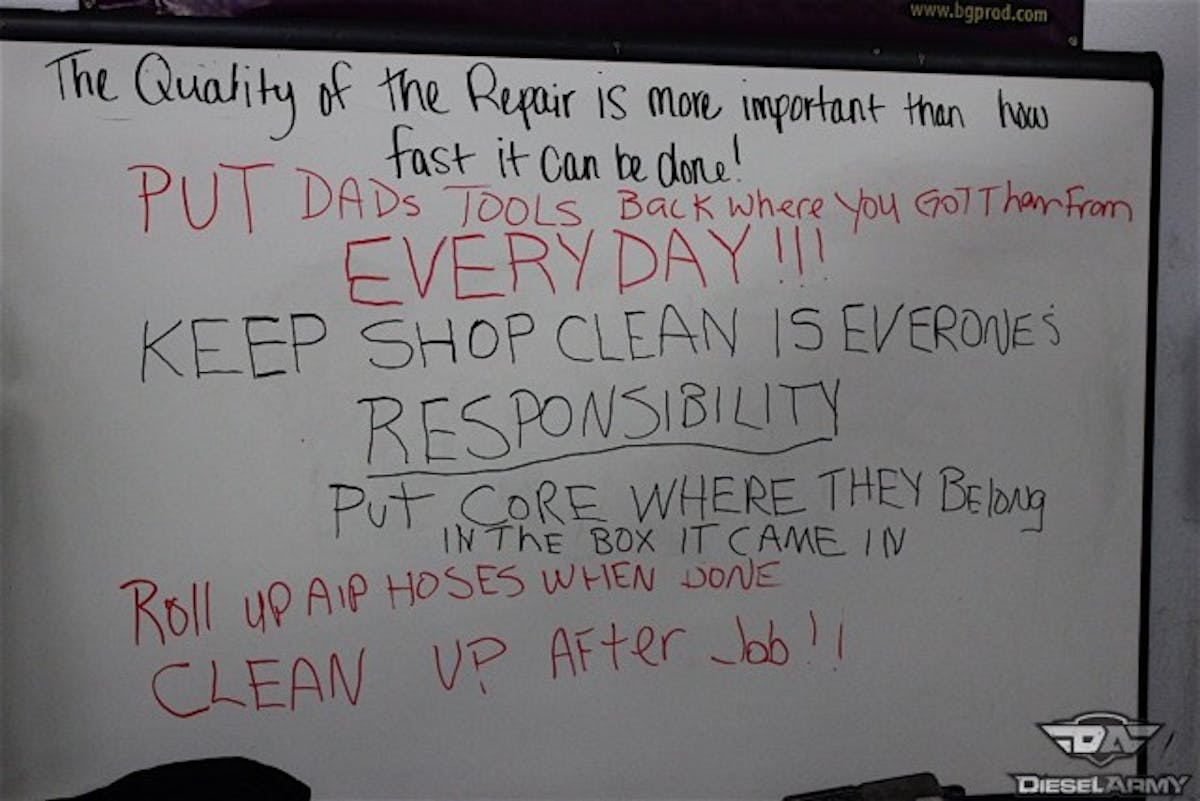 www.bgprod.com
The Quality of the Repair is more important than how
fast it can be done!
PUT DADs TOOLS Back where you GOT Them From
EVERY DAY!!!
KEEP SHOP CLEAN IS EVERONE'S
RESPONSIBILITY
Put CORE WHERE THEY BElong
IN ThE BOX IT CAME IN
Roll UP AIR HOSES WHEN DONE
CLEAN UP AFter Job!!
DA
DIESEL ARMY